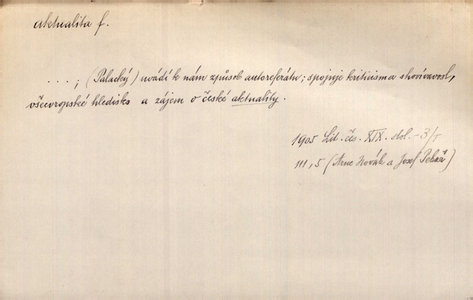 aktualita f.
. . . ; (Palacký) uvádí k nám způsob autoreferátu; spojuje kriticismu shovívavost,
všeevropské hlediska a zájem o české aktuality.
1905 Lit. čes. XIX. stol. -3/1
111,5 (Arne Novák a Josef Pekař)